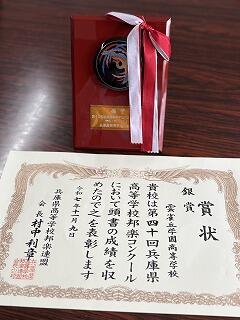 賞状
銀賞
雲雀丘学園高等学校
貴校は第四十回兵庫県
高等学校邦楽コンクール
において頭書の成績を収
めたので之を表彰します
令和七年十一月九日
兵庫県高等学校邦楽連盟
会長 村中利章